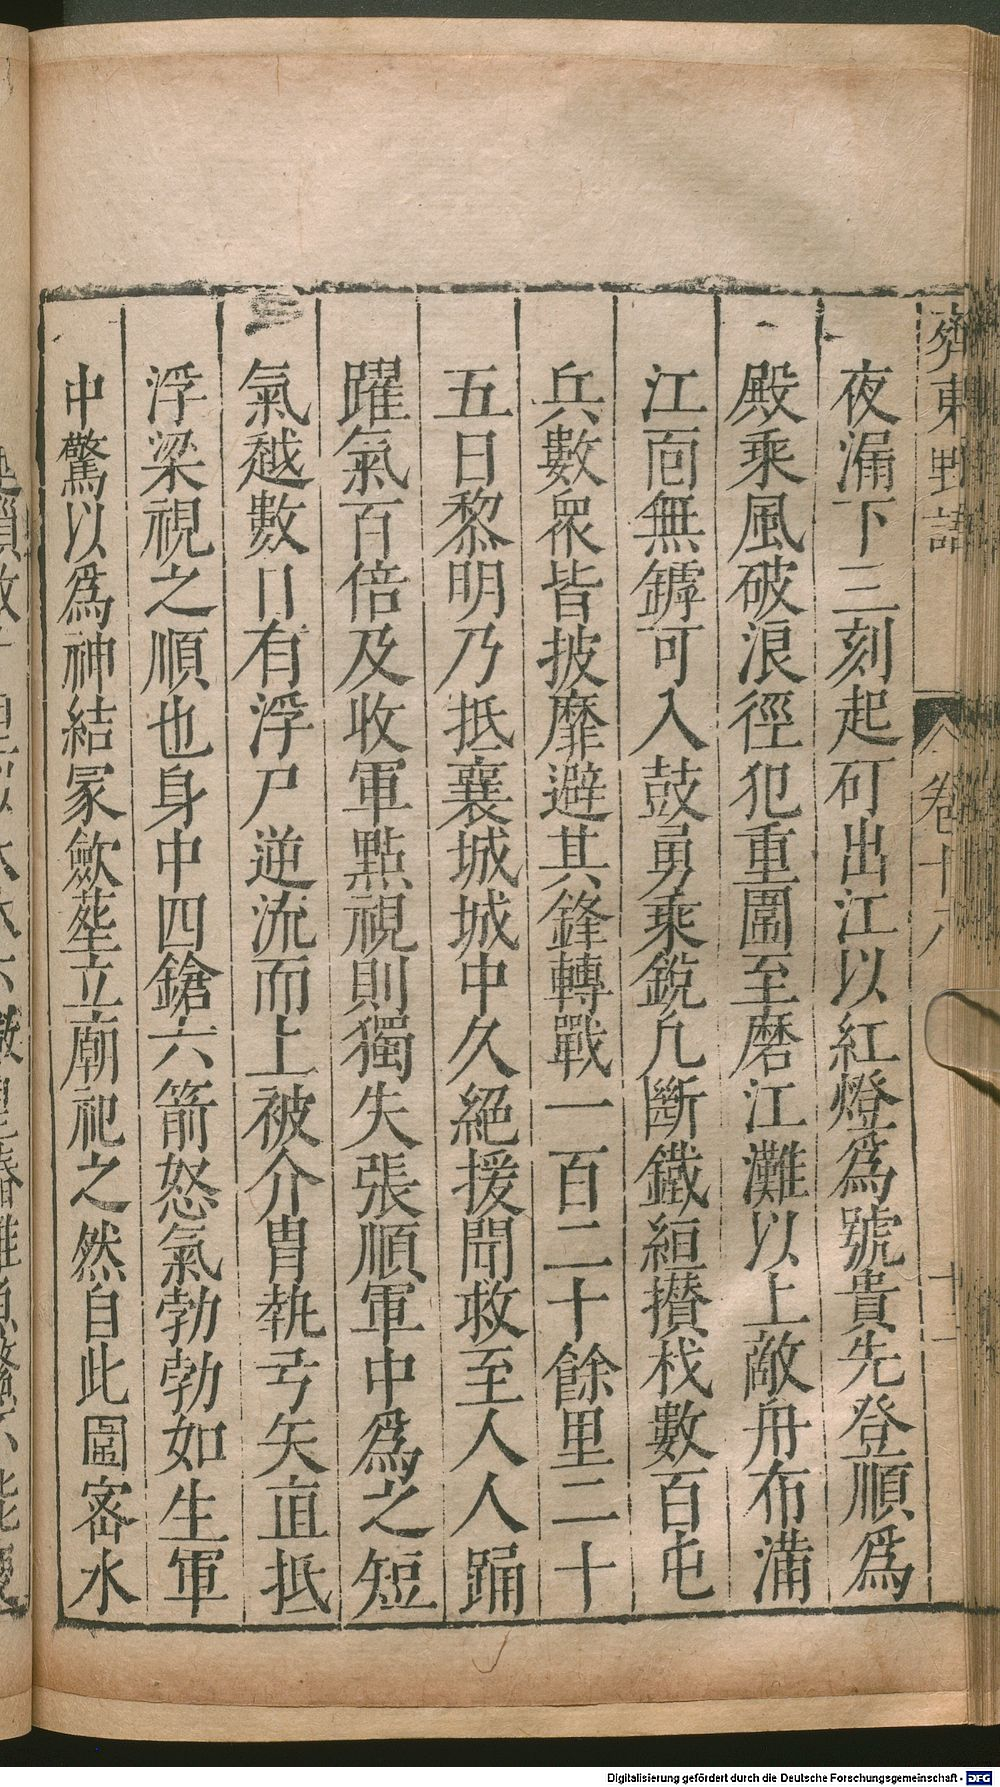 齊東野語
卷十八
十一
夜漏下三刻起矴出江以紅燈爲號貴先登順爲
殿乘風破浪徑犯重圍至磨江灘以上敵舟布滿
江面無罅可入鼓勇乘銳凡斷鐵絙攅栰數百屯
兵數衆皆披靡避其鋒轉戰一百二十餘里二十
五日黎明乃抵襄城城中久絕援聞救至人人踊
躍氣百倍及收軍點視則獨失張順軍中爲之短
氣越數日有浮尸逆流而上被介胄執弓矢直抵
浮梁視之順也身中四鎗六箭怒氣勃勃如生軍
中驚以爲神結冢斂塟立廟祀之然自此圍密水
Digitalisierung gefördert durch die Deutsche Forschungsgemeinschaft - DFG